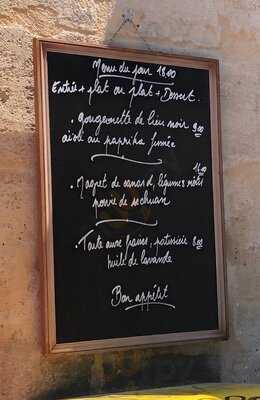 Menu du jour 18.00
Entrée + plat ou plat + Dessert.
. gougeonette de lieu noir 9.00
aïole au paprika fumée
. Magret de canard, légumes rôtis 14.00
poivre de sechuan
. Tarte aux fraises, patissière 8.00
huile de lavande
Bon appétit